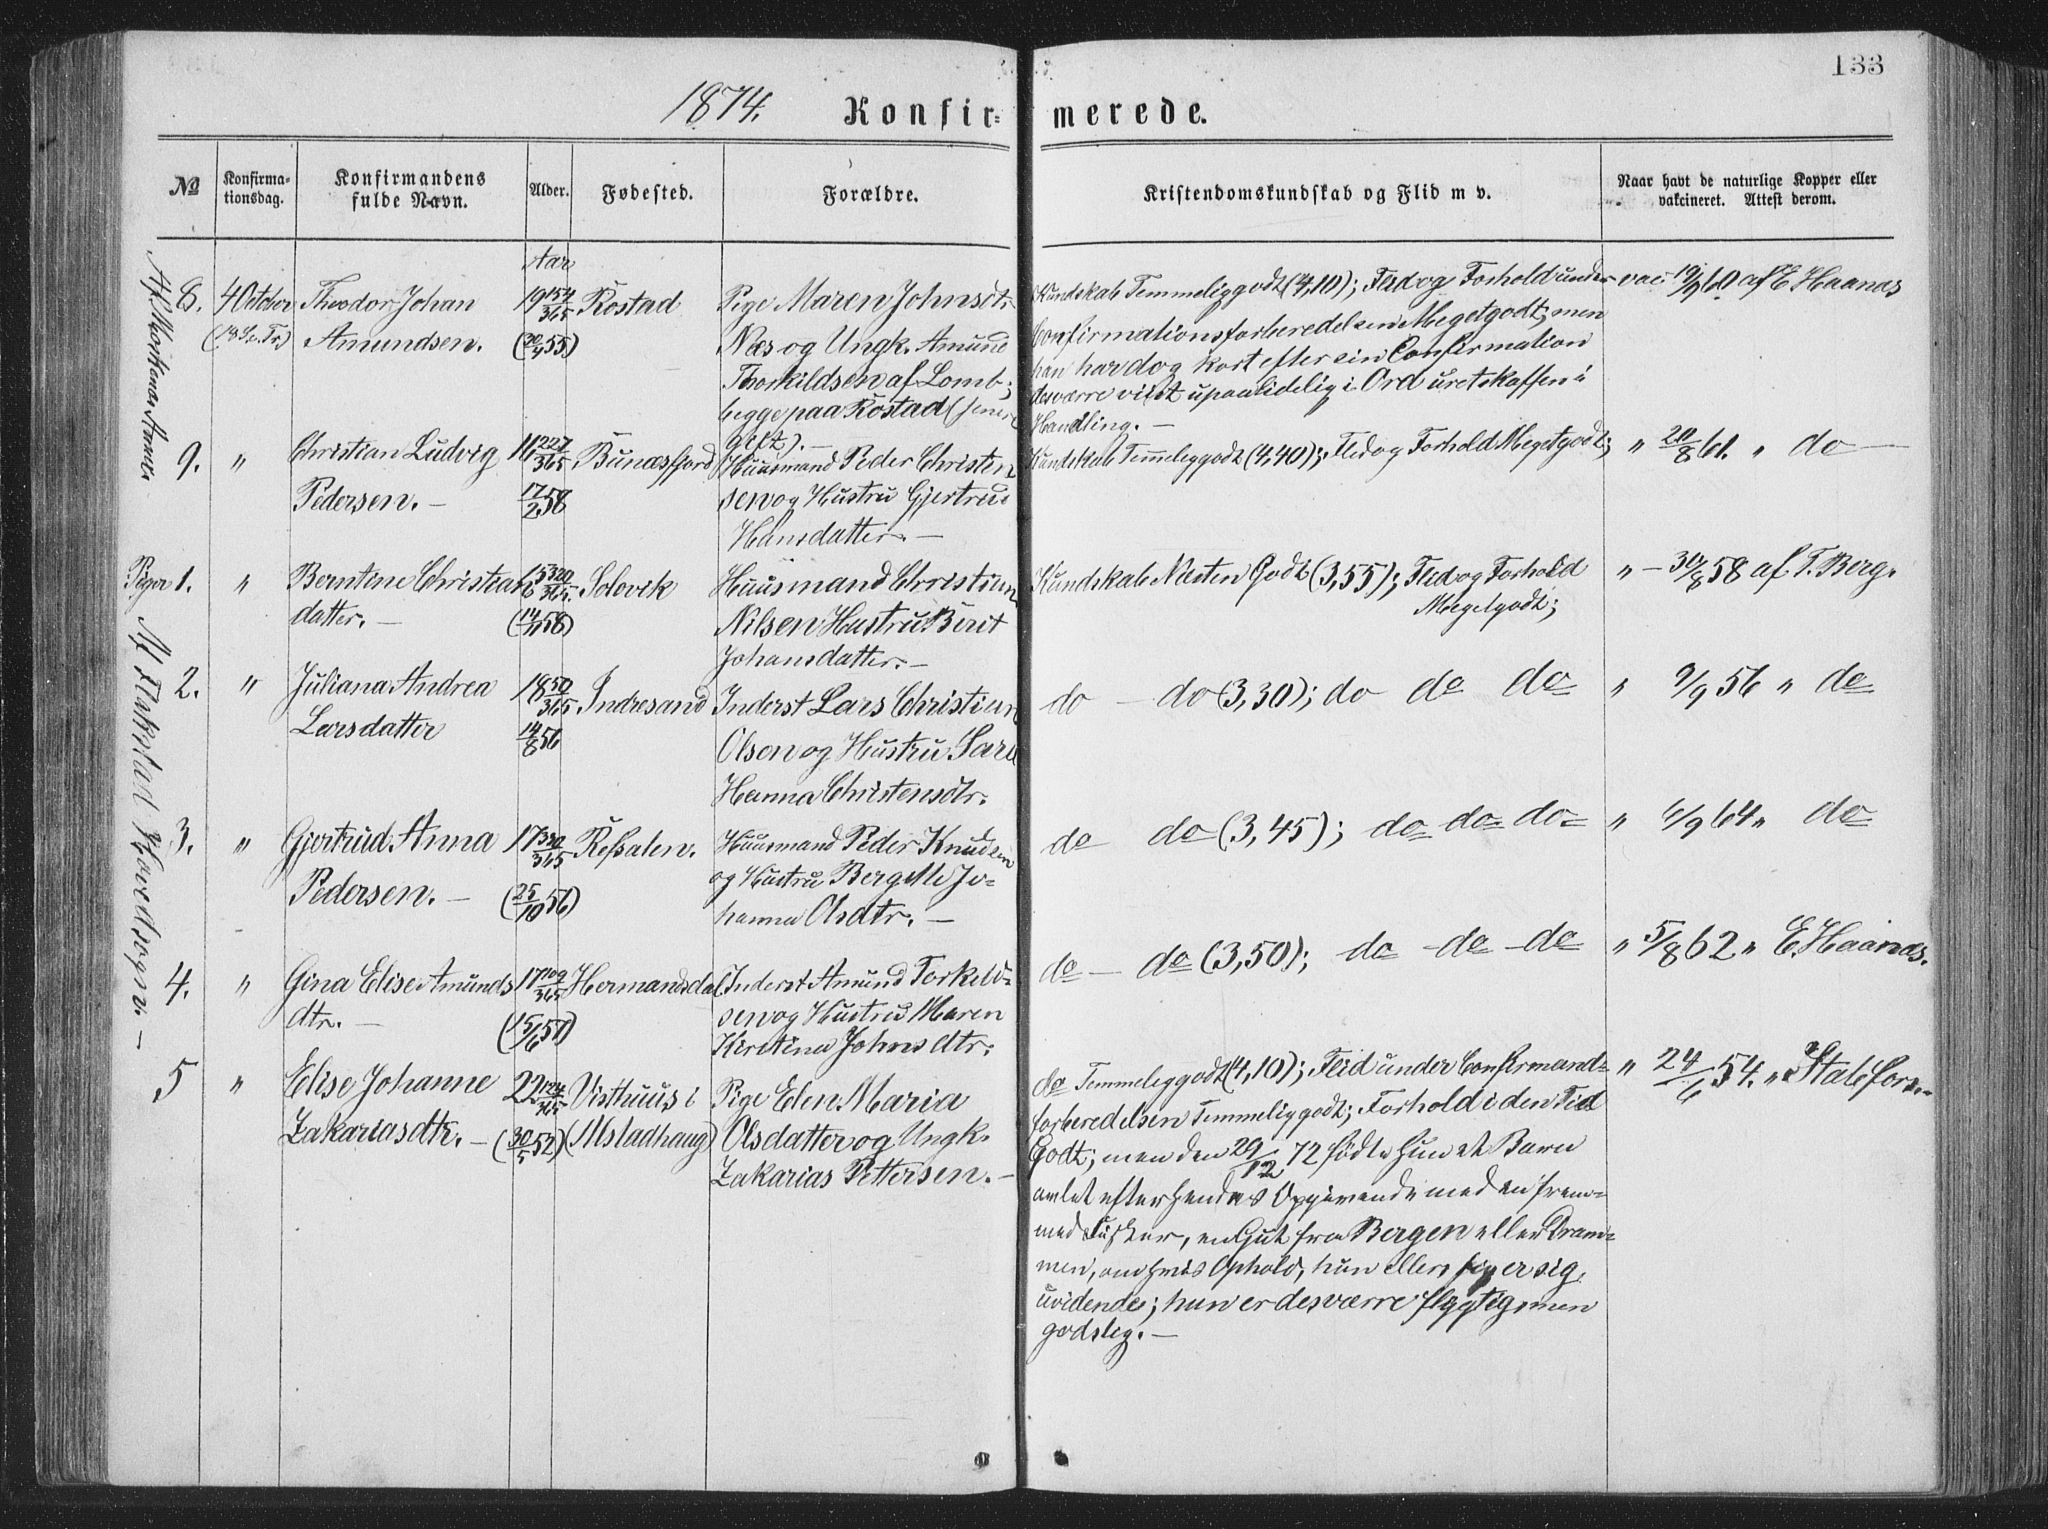 133
1874.
Konfir-
merede.
No
Konfirma-
tionsdag.
Konfirmandens
fulde Navn.
Alder.
Fødested.
Forældre.
Kristendomskundskab og Flid m v.
Naar havt de naturlige Kopper eller
vakcineret. Attest derom.
Aar
8. 4 October Theodor Johan 19 154/365 Rostad Pige Maren Johnsdtr.
Amundsen. (20/4 55) Næs og Ungk. Amund
Thorkildsen af Lomb;
begge paa Rostad (senere
gift). —
Kundskab Temmeliggodt (4,10); Flid og Forhold under
Confirmationsforberedelsen Megetgodt; men
han har dog kort efter sin Confirmation
desværre viist upaalidelig i Ord uretskaffen i
Handling. —
vac. 19/9 60 af E Haanas
9. " Christian Ludvig 16 227/365 Bunæsfjord Huusmand Peder Christen
Pedersen. — 17/2 58 sen og Hustru Gjertrud
Hansdatter. —
Kundskab Temmeliggodt (4,40); Flid og Forhold Megetgodt;
" 20/8 61. " do —
Piger 1. " Berntine Christian 15 320/365. Solovik Huusmand Christian
datter. — (14/11 58) Nilsen Hustru Berit
Johansdatter. —
Kundskab Næsten Godt (3,55); Flid og Forhold
Megetgodt;
" — 30/8 58 af T. Berg.
2. " Juliana Andrea 18 50/365 Indresand Inderst Lars Christian
Larsdatter 14/8 56 Olsen og Hustru Sara
Hanna Christensdtr.
do — do (3,30); do do do
" 9/9 56 " do
3. " Gjertrud Anna 17 330/365 Ressalen. Huusmand Peder Knudsen
Pedersen. — (25/10 56) og Hustru Bergitte Jo-
hanna Olsdtr. —
do do (3,45); do do do
" 6/9 64 " do
4. " Gina Elise Amunds 17 109/365 Hermansdal Inderst Amund Torkild-
dtr. — (15/6 57) sen og Hustru Maren
Kirstina Johnsdtr.
do — do (3,50); do do do
" 5/8 62 " E. Haanas.
5 " Elise Johanne 22 124/365 Visthuus i Pige Elen Maria
Zakariasdtr. — (30/5 52) (Alstadhaug) Olsdatter og Ungk.
Zakarias Pettersen. —
do Temmeliggodt (4,10); Flid under Confirmand-
forberedelsen Temmeliggodt; Forhold i den Tid
Godt; men den 29/12 72 fødte hun et Barn
avlet efter hendes Opgivende med en frem-
med Fisker, en Gut fra Bergen eller Dram-
men, om hvis Ophold, hun ellers siger sig
uvidende; hun er desværre flygtig men
godslig. —
" 24/6 54. " Stabefors.
Af Flakstad Hovedsogn. —